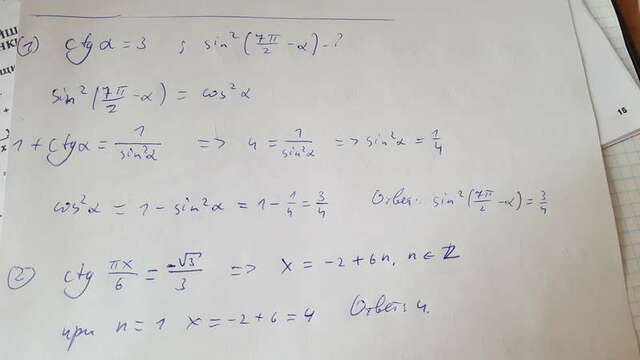 ① ctgα = 3 ; sin²(7π/2 − α) − ?
sin²(7π/2 − α) = cos²α
1 + ctgα = 1/sin²α => 4 = 1/sin²α => sin²α = 1/4
cos²α = 1 − sin²α = 1 − 1/4 = 3/4 Ответ: sin²(7π/2 − α) = 3/4
② ctg πx/6 = −√3/3 => x = −2 + 6n, n ∈ Z
при n = 1 x = −2 + 6 = 4 Ответ: 4.
16